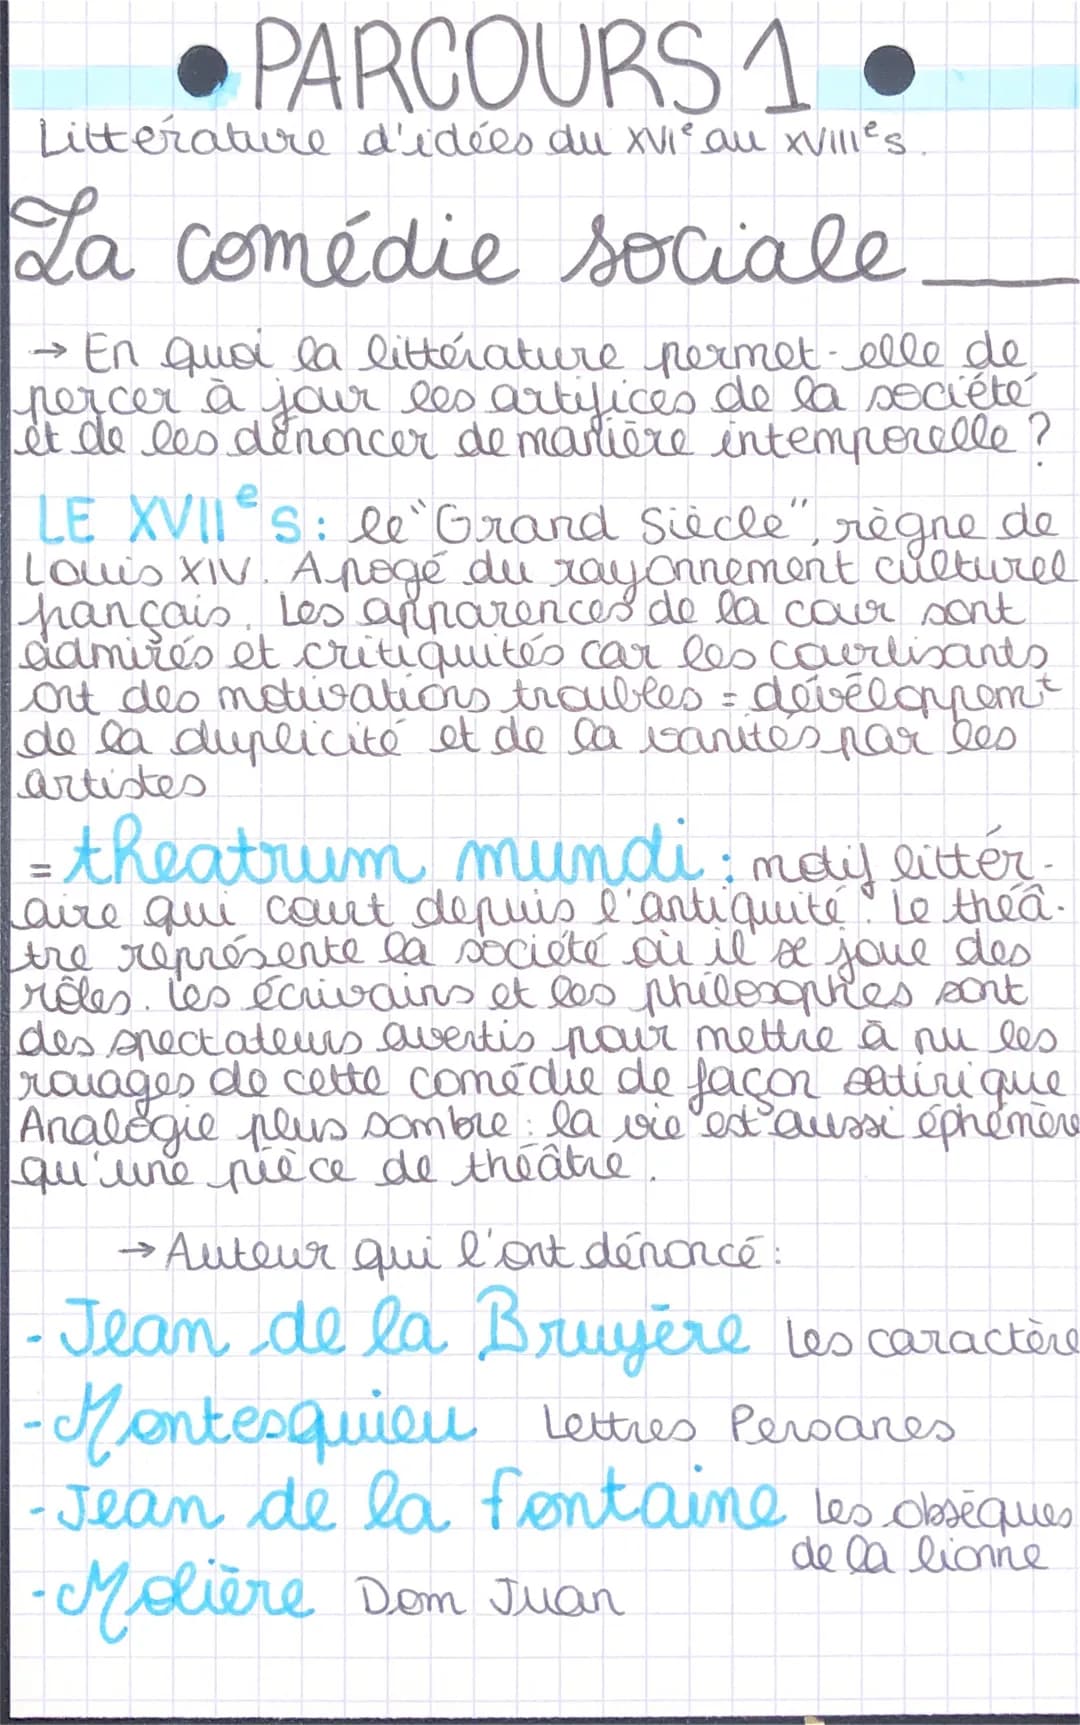 • PARCOURS 1 •
Littérature d'idées du XVIe au XVIIIe s.
La comédie sociale
→ En quoi la littérature permet-elle de
percer à jour les artifices de la société
et de les dénoncer de manière intemporelle ?
LE XVIIe s: le "Grand Siècle", règne de
Louis XIV. Apogé du rayonnement culturel
français. Les apparences de la cour sont
admirés et critiquités car les courtisants
ont des motivations troubles = développemt
de la duplicité et de la vanités par les
artistes
= theatrum mundi : motif littér-
aire qui court depuis l'antiquité. Le théâ-
tre représente la société où il se joue des
rôles. Les écrivains et les philosophes sont
des spectateurs avertis pour mettre à nu les
rouages de cette comédie de façon satirique
Analogie plus sombre : la vie est aussi éphémère
qu'une pièce de théâtre.
→ Auteur qui l'ont dénoncé :
- Jean de la Bruyère Les caractère
- Montesquieu Lettres Persanes
- Jean de la fontaine Les obsèques
de la lionne
- Molière Dom Juan